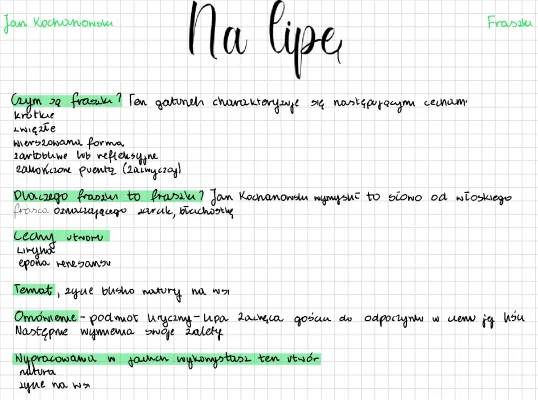 Jan Kochanowski
Fraszki
Na lipę
Czym są fraszki? Ten gatunek charakteryzuje się następującymi cechami:
krótkie
zwięzłe
wierszowana forma
żartobliwe lub refleksyjne
zakończone puentą (zazwyczaj)
Dlaczego fraszki to fraszki? Jan Kochanowski wymyślił to słowo od włoskiego
frasca oznaczającego żarcik, błahostkę
Cechy utworu
liryka
epoka renesansu
Temat, życie blisko natury na wsi
Omówienie - podmiot liryczny - lipa zachęca gościa do odpoczynku w cieniu jej liści
Następnie wymienia swoje zalety
Wypracowania w jakich wykorzystasz ten utwór
natura
życie na wsi